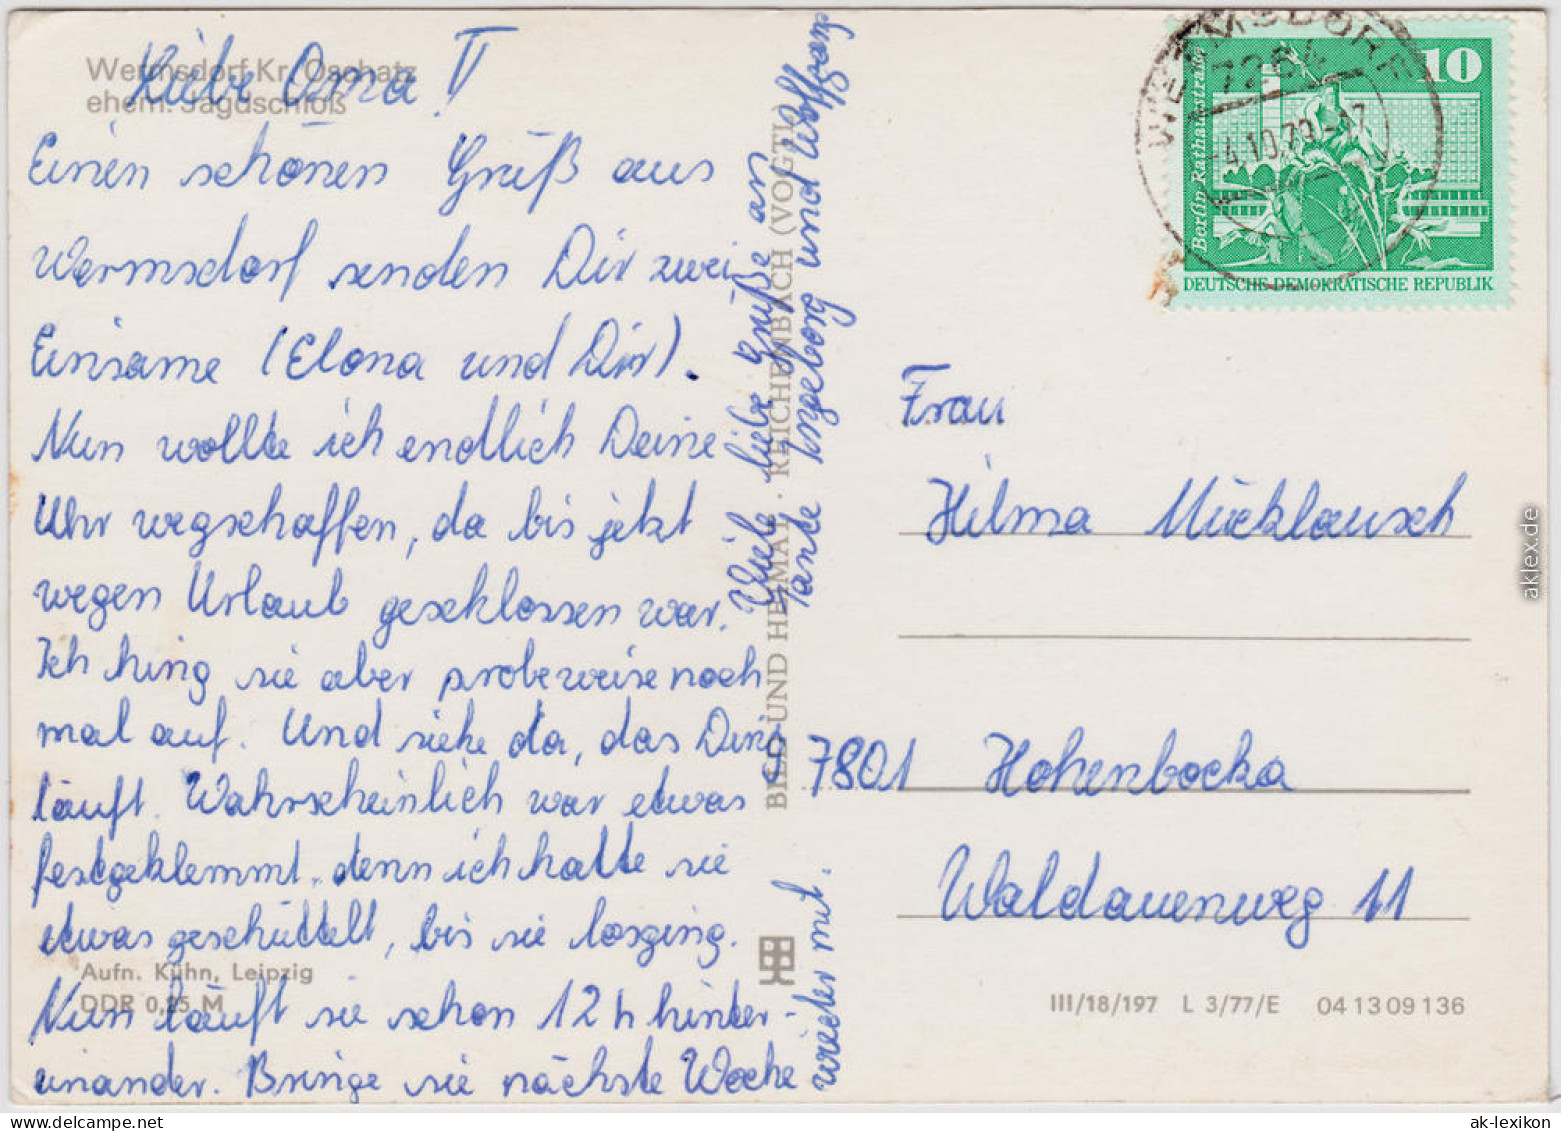 Wermsdorf Kr. Oschatz
ehem. Jagdschloß
Liebe Oma!
Einen schönen Gruß aus
Wermsdorf senden Dir zwei
Einsame (Elona und Dirk).
Nun wollte ich endlich Deine
Uhr wegschaffen, da bis jetzt
wegen Urlaub geschlossen war.
Ich hing sie aber probeweise noch
mal auf. Und siehe da, das Ding
läuft. Wahrscheinlich war etwas
festgeklemmt, denn ich hatte sie
etwas geschüttelt, bis sie losging.
Nun läuft sie schon 12 h hinter-
einander. Bringe sie nächste Woche
wieder mit.
Viele liebe Grüße an
Tante Ingeborg und Wolfgang
Aufn. Kühn, Leipzig
DDR 0,25 M
BILD UND HEIMAT · REICHENBACH (VOGTL)
WERMSDORF
7264
-4.10.79-17
10
Berlin-Rathausstraße
DEUTSCHE DEMOKRATISCHE REPUBLIK
Frau
Hilma Mücklausch
7801 Hohenbocka
Waldauenweg 11
III/18/197 L 3/77/E 04 13 09 136
aklex.de
ak-lexikon